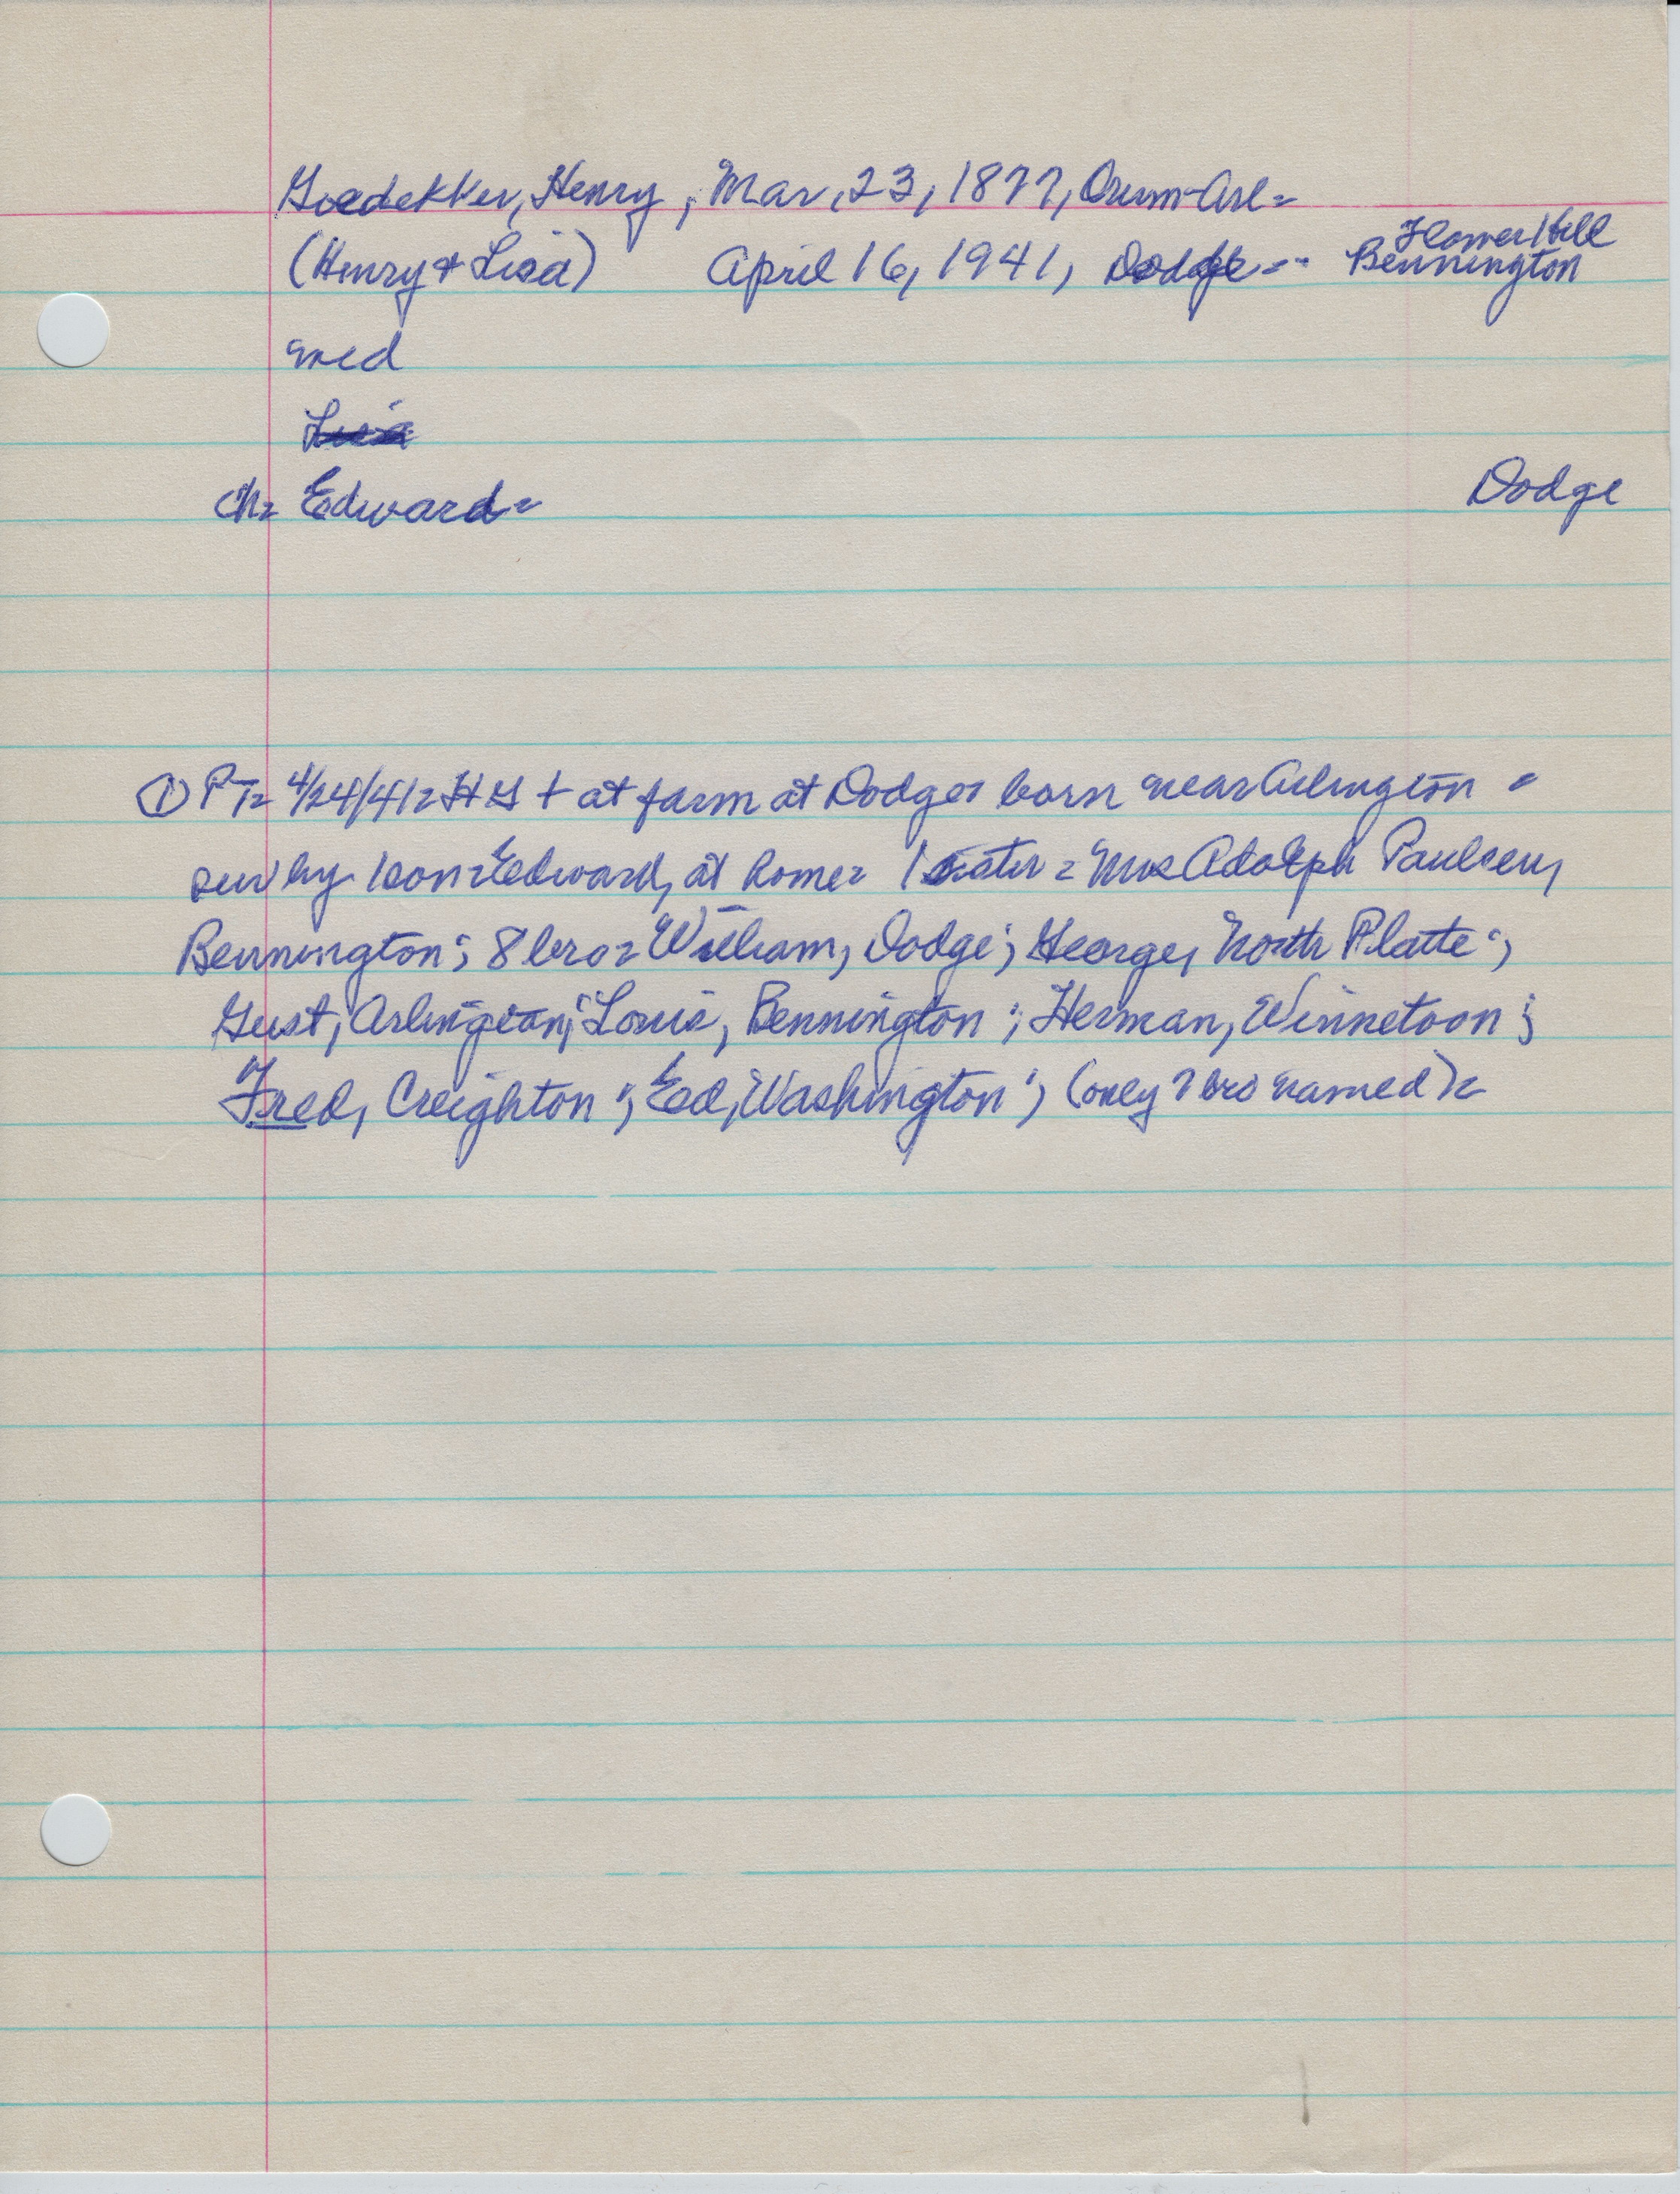 Goedekker, Henry, Mar. 23, 1877, Orum-Arl-
(Henry & Lisa) April 16, 1941, Dodge -- Flower Hill Bennington
med
Lisa
ch- Edward- Dodge
① PT- 4/24/41- HG + at farm at Dodge- born near Arlington -
surv by 1 son- Edward, at home- 1 sister - Mrs Adolph Paulsen,
Bennington; 8 bro- William, Dodge; George, North Platte;
Gust, Arlington; Louis, Bennington; Herman, Winnetoon;
Fred, Creighton; Ed, Washington; (only 7 bro named)-